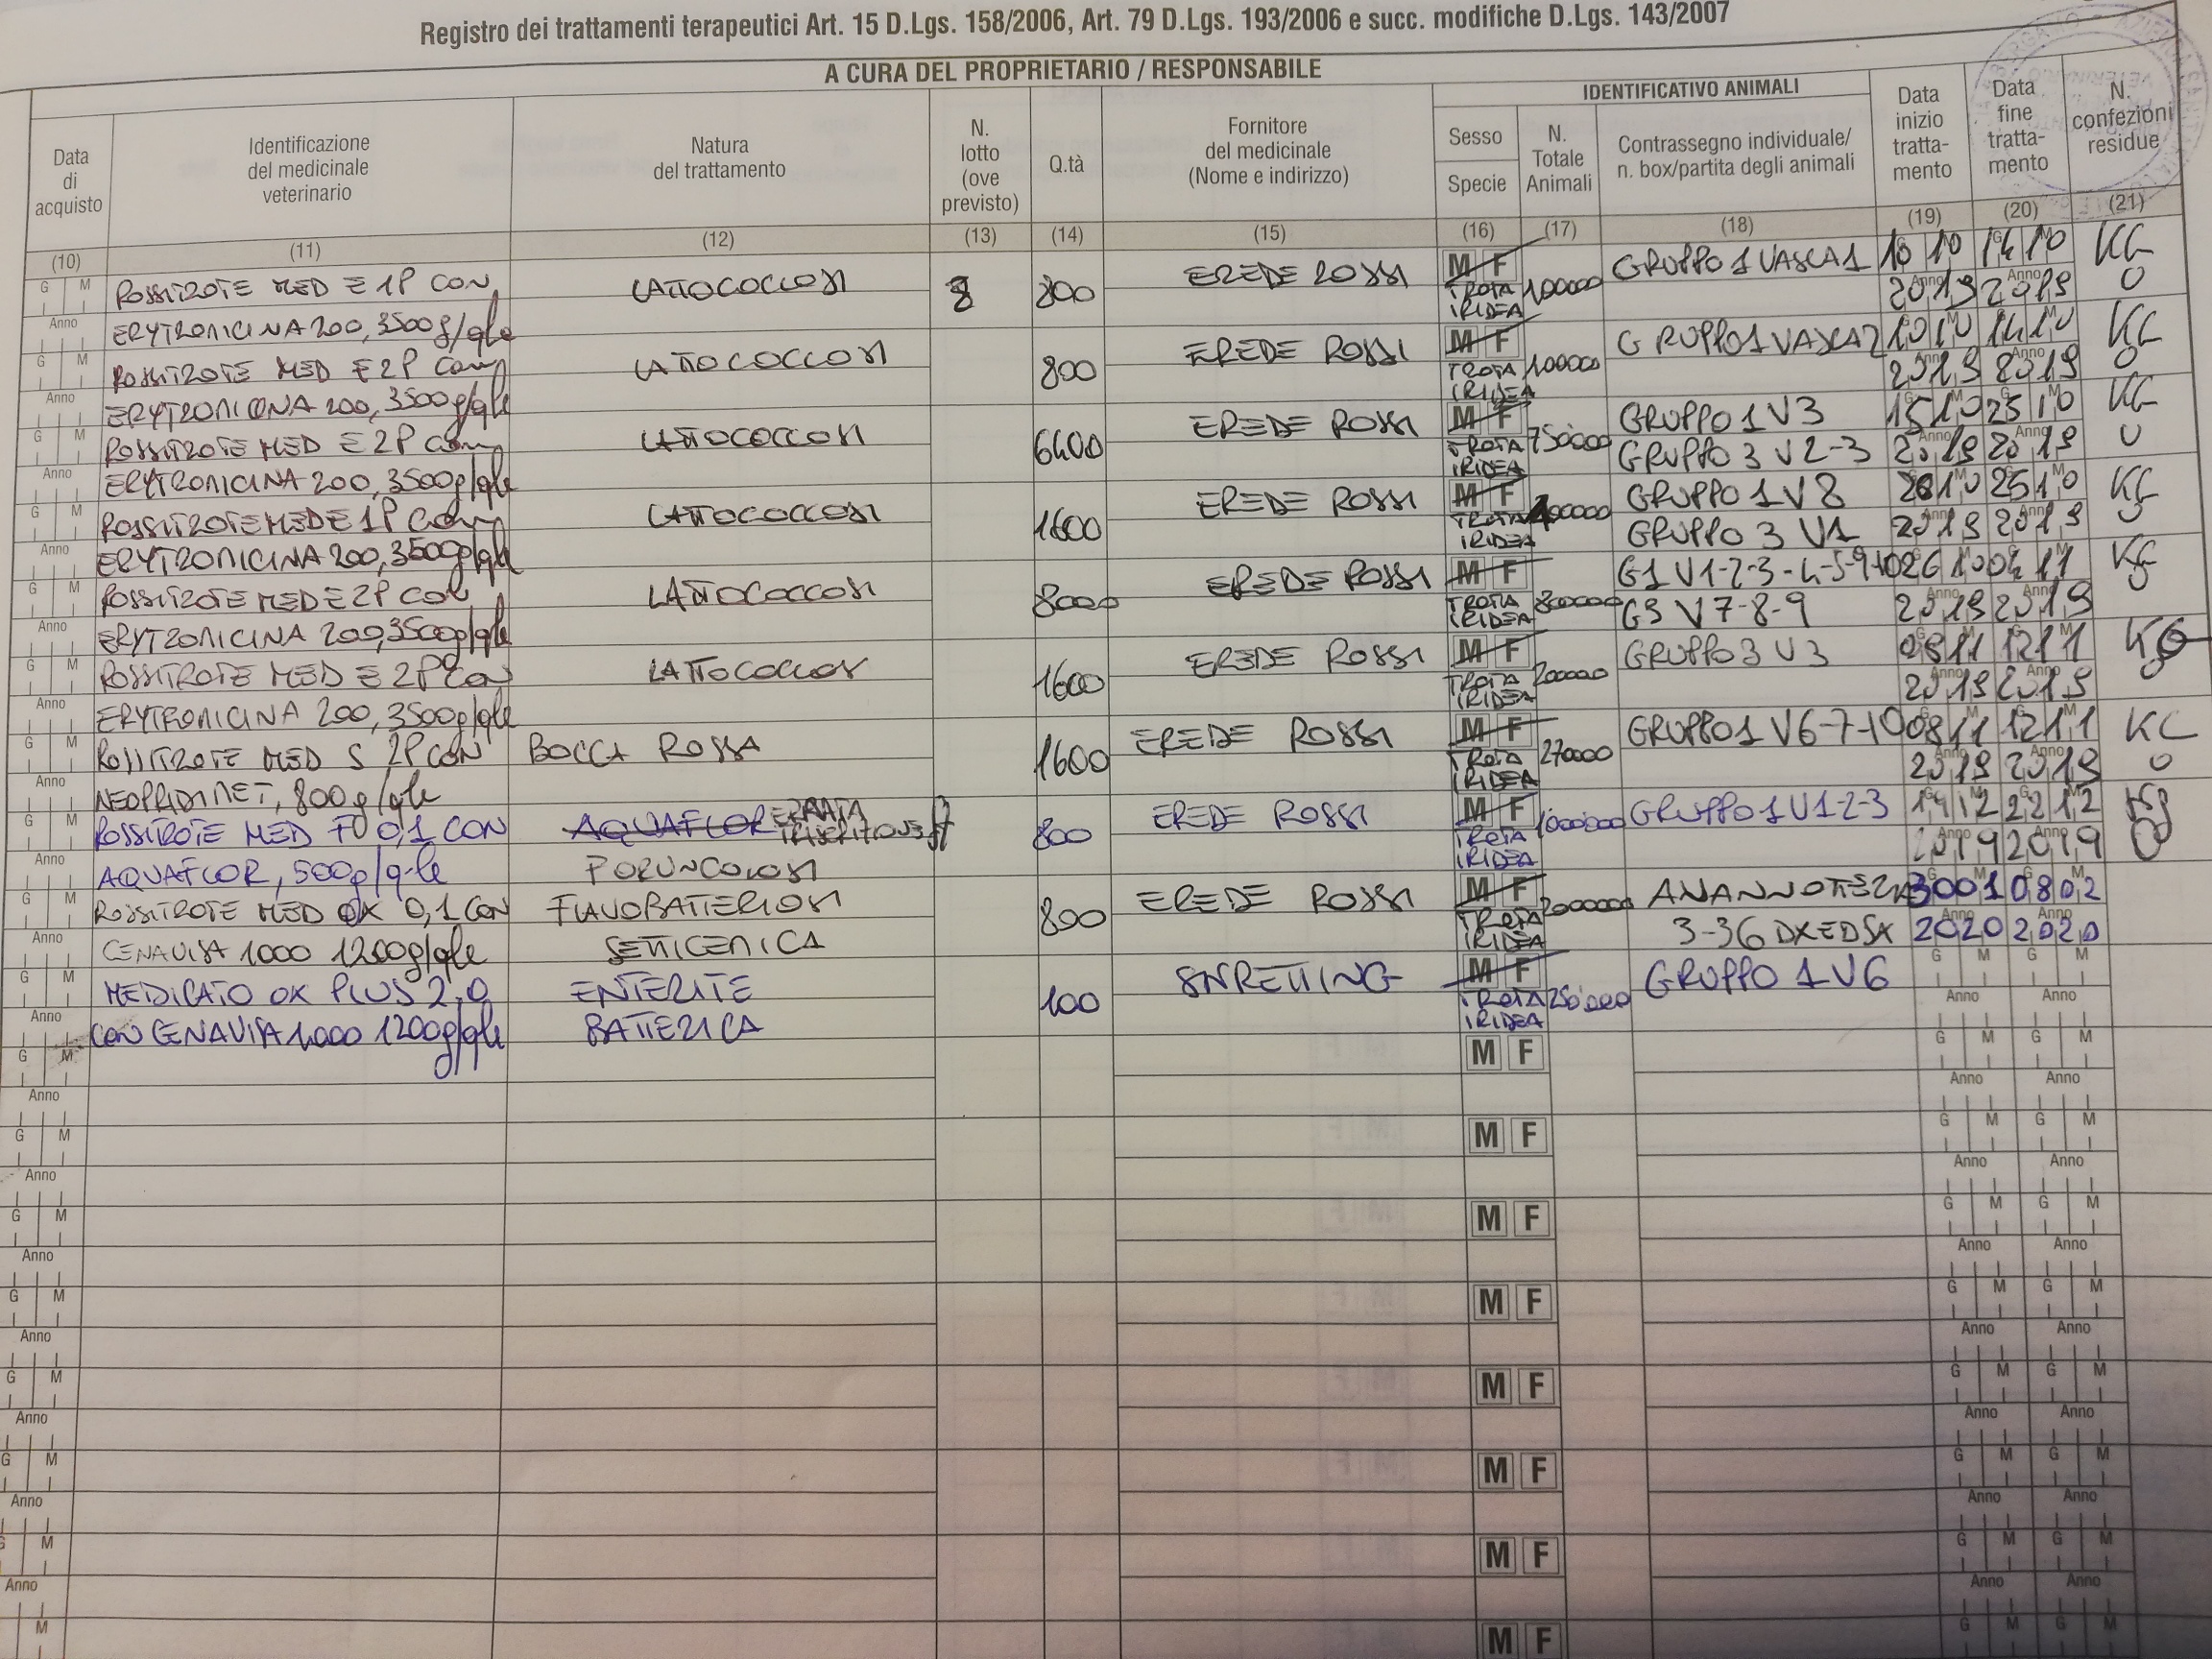 Registro dei trattamenti terapeutici Art. 15 D.Lgs. 158/2006, Art. 79 D.Lgs. 193/2006 e succ. modifiche D.Lgs. 143/2007
A CURA DEL PROPRIETARIO / RESPONSABILE
IDENTIFICATIVO ANIMALI
Data di acquisto
Identificazione del medicinale veterinario
Natura del trattamento
N. lotto (ove previsto)
Q.tà
Fornitore del medicinale (Nome e indirizzo)
Sesso
Specie
N. Totale Animali
Contrassegno individuale/ n. box/partita degli animali
Data inizio tratta-mento
Data fine tratta-mento
N. confezioni residue
(10) (11) (12) (13) (14) (15) (16) (17) (18) (19) (20) (21)
ROSSITROTE MED E 1P CON LATTOCOCCOSI 800 EREDE ROSSI M F 100000 GRUPPO 1 VASCA 1 10 10 14 10 KG
ERYTROMICINA 200, 3500g/qle TROTA IRIDEA 2019 2019 0
ROSSITROTE MED E 2P CON LATTOCOCCOSI 800 EREDE ROSSI M F 100000 GRUPPO 1 VASCA 2 10 10 14 10 KG
ERYTROMICINA 200, 3500g/qle TROTA IRIDEA 2019 2019 0
ROSSITROTE MED E 2P CON LATTOCOCCOSI 6400 EREDE ROSSI M F 750000 GRUPPO 1 V3 15 10 25 10 KG
ERYTROMICINA 200, 3500g/qle TROTA IRIDEA GRUPPO 3 V2-3 2019 2019 0
ROSSITROTE MED E 1P CON LATTOCOCCOSI 1600 EREDE ROSSI M F GRUPPO 1 V8 10 25 10 KG
ERYTROMICINA 200, 3500g/qle TROTA IRIDEA GRUPPO 3 V1 2019 2019 0
ROSSITROTE MED E 2P CON LATTOCOCCOSI 8000 EREDE ROSSI M F 800000 G1 V1-2-3-4-5-9-10 26 10 04 11 KG
ERYTROMICINA 200, 3500g/qle TROTA IRIDEA G3 V7-8-9 2019 2019 0
ROSSITROTE MED E 2P CON LATTOCOCCOSI 1600 EREDE ROSSI M F 200000 GRUPPO 3 V3 08 11 12 11 KG
ERYTROMICINA 200, 3500g/qle TROTA IRIDEA 2019 2019 0
ROSSITROTE MED S 2P CON BOCCA ROSSA 1600 EREDE ROSSI M F 270000 GRUPPO 1 V6-7-10 08 11 12 11 KG
NEOPRIDIMET, 800g/qle TROTA IRIDEA 2019 2019 0
ROSSITROTE MED FU 0,1 CON AQUAFLOR ERRATA TRASCRIZIONE 800 EREDE ROSSI M F GRUPPO 1 V1-2-3 12 22 12 Kg
AQUAFLOR, 500g/qle FORUNCOLOSI TROTA IRIDEA 2019 2019 0
ROSSITROTE MED OX 0,1 CON FLAVOBATTERIOSI 800 EREDE ROSSI M F AVANNOTTERIA 30 01 08 02
CENAVISA 1000 1200g/qle SETTICEMICA TROTA IRIDEA 3-36 DX E DSX 2020 2020
MEDICATO OX PLUS 2.0 ENTERITE 100 SKRETTING M F 250000 GRUPPO 1 V6
CON CENAVISA 1000 1200g/qle BATTERICA TROTA IRIDEA
G M Anno M F G M Anno G M Anno
G M Anno M F G M Anno G M Anno
G M Anno M F G M Anno G M Anno
G M Anno M F G M Anno G M Anno
G M Anno M F G M Anno G M Anno
G M Anno M F G M Anno G M Anno
G M Anno M F G M Anno G M Anno
M M F G M G M